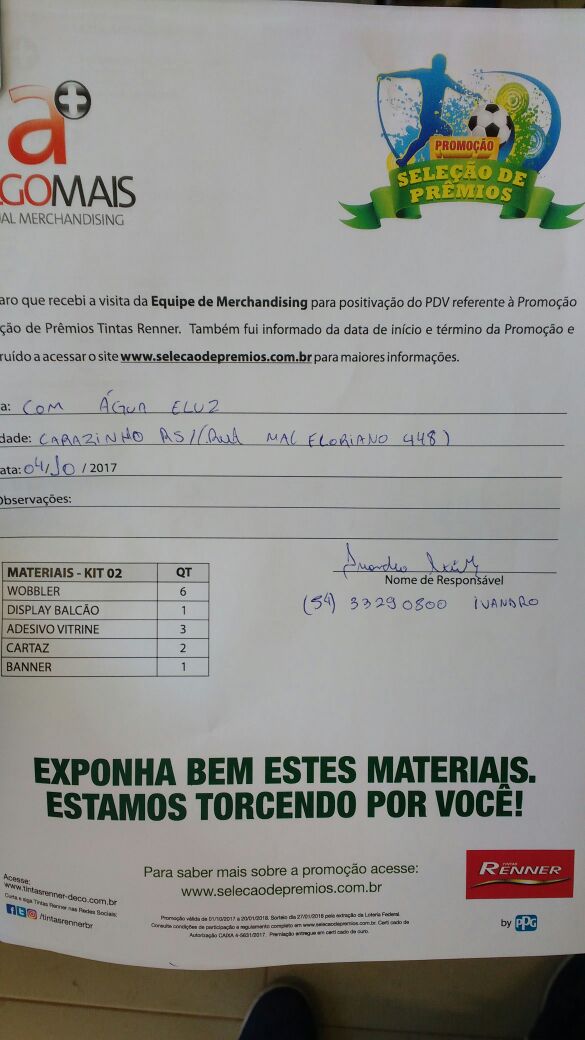 a+
PROMOÇÃO
SELEÇÃO DE
PRÊMIOS
GOMAIS
AL MERCHANDISING
aro que recebi a visita da Equipe de Merchandising para positivação do PDV referente à Promoção
ção de Prêmios Tintas Renner. Também fui informado da data de início e término da Promoção e
ruído a acessar o site www.selecaodepremios.com.br para maiores informações.
a: COM ÁGUA ELUZ
dade: CARAZINHO RS/(RUA MAL FLORIANO 448)
ata: 04/10 / 2017
Observações:
MATERIAIS - KIT 02 QT
WOBBLER 6
DISPLAY BALCÃO 1
ADESIVO VITRINE 3
CARTAZ 2
BANNER 1
Nome de Responsável
(54) 33290800 IVANDRO
EXPONHA BEM ESTES MATERIAIS.
ESTAMOS TORCENDO POR VOCÊ!
Para saber mais sobre a promoção acesse:
www.selecaodepremios.com.br
TINTAS
RENNER
Acesse:
www.tintasrenner-deco.com.br
Curta e siga Tintas Renner nas Redes Sociais:
/tintasrennerbr
Promoção válida de 01/10/2017 a 20/01/2018. Sorteio dia 27/01/2018 pela extração da Loteria Federal.
Consulte condições de participação e regulamento completo em www.selecaodepremios.com.br. Certi cado de
Autorização CAIXA 4-5631/2017. Premiação entregue em certi cado de ouro.
by PPG